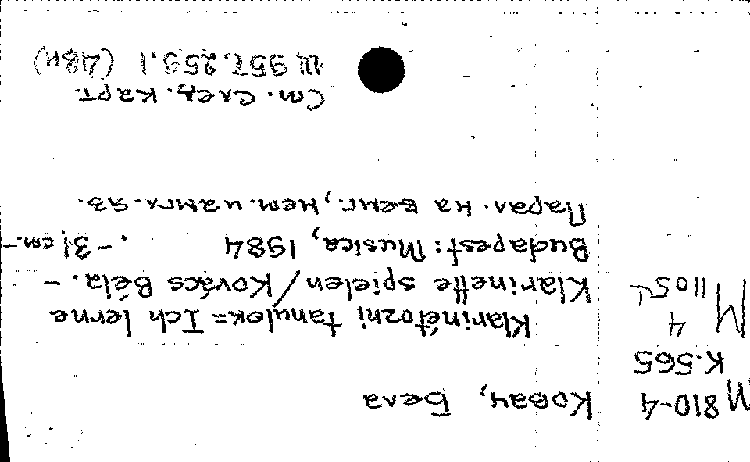 М 810-4 Ковач, Бела
К.565
Klarinétozni tanulok = Ich lerne
М 4
1105
Klarinette spielen / Kovács Béla. -
Budapest: Musica, 1984 . - 31 cm. -
Парал. на венг., нем. и англ. яз.
См. след. карт.
Ш 957.259.1 (484)